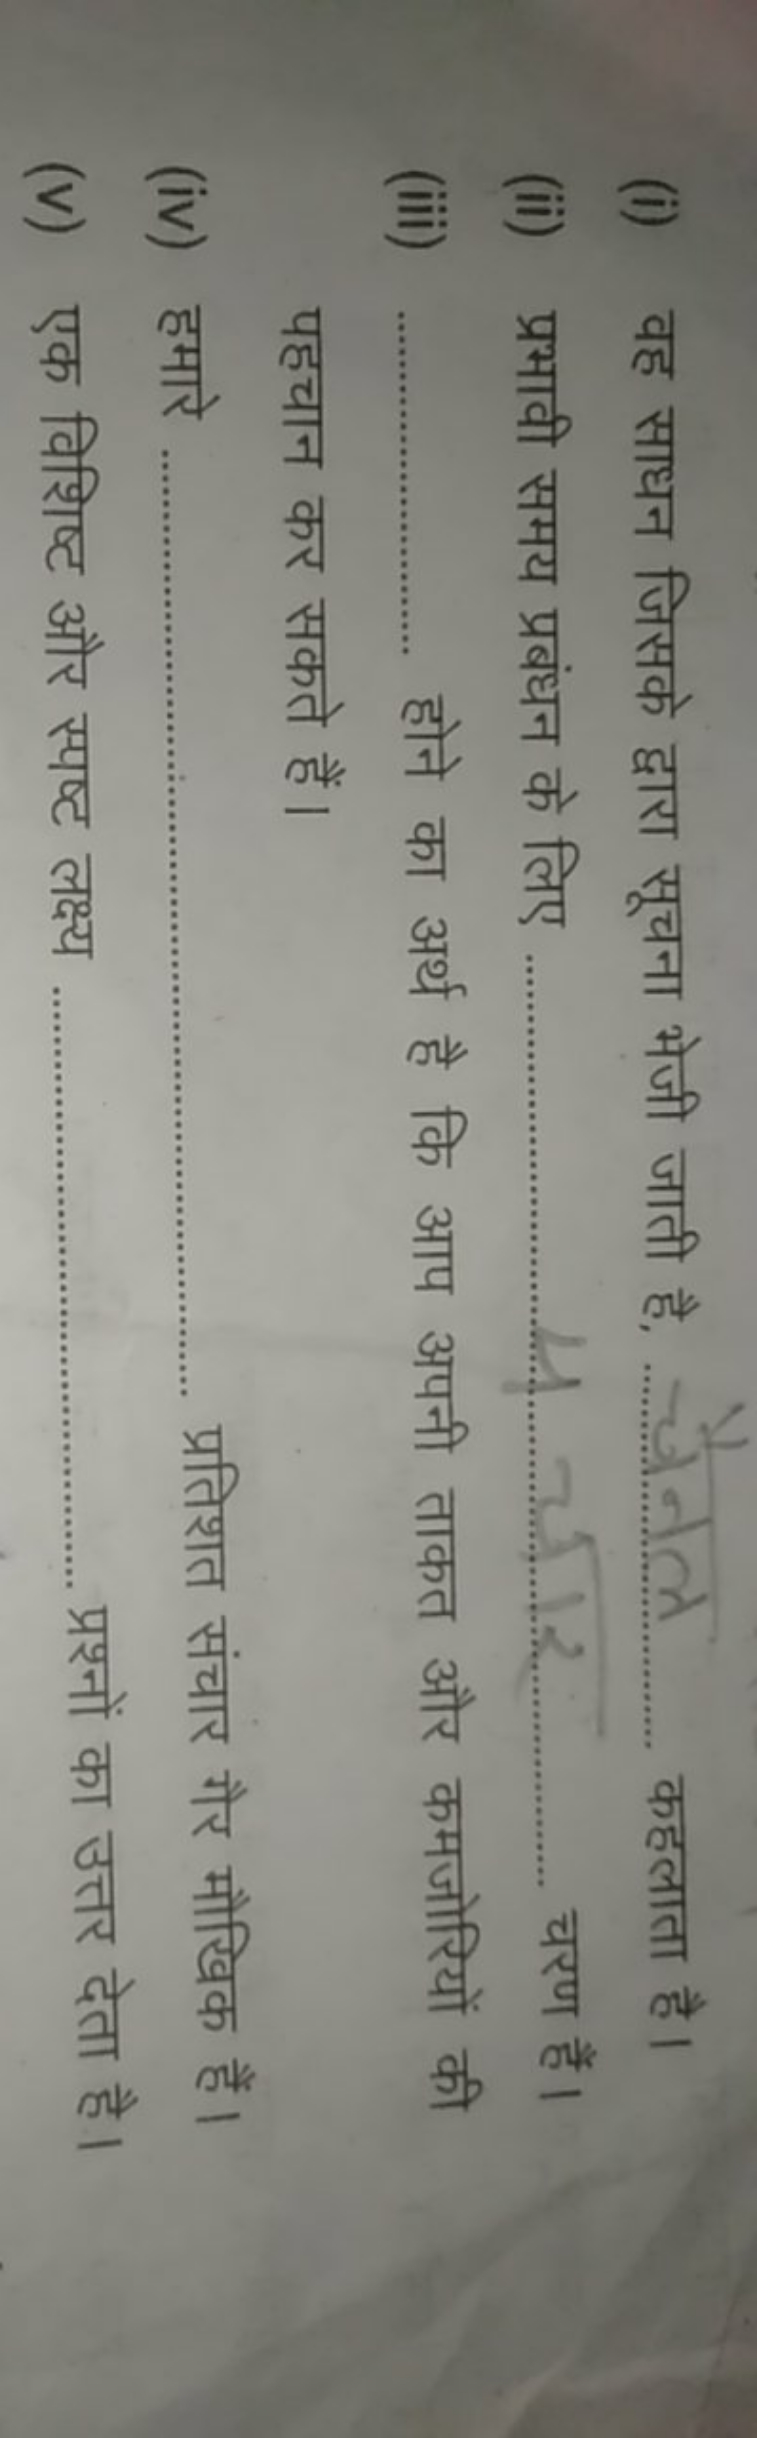 (i) वह साधन जिसके द्वारा सूचना भेजी जाती है, ....चैनल.... कहलाता है।
(ii) प्रभावी समय प्रबंधन के लिए ........ 4 चार ........ चरण हैं।
(iii) ........................ होने का अर्थ है कि आप अपनी ताकत और कमजोरियों की
पहचान कर सकते हैं।
(iv) हमारे ........................ प्रतिशत संचार गैर मौखिक हैं।
(v) एक विशिष्ट और स्पष्ट लक्ष्य ........................ प्रश्नों का उत्तर देता है।